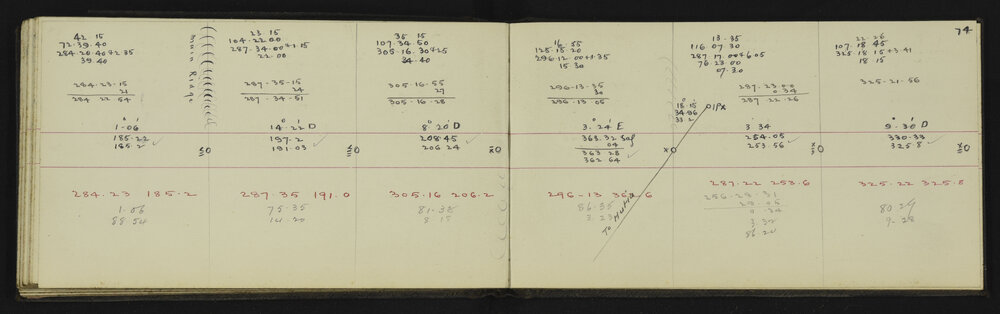 74
42 15
72.39.40
284.20.40+2.35
39.40
284-23-15
21
284 22 54
1-06
185.22
185.2
284.23 185.2
1.06
88 54
Main Ridge
23 15
104-22 00
287-34-00+1 15
22.00
287-35-15
24
287-34-51
14-22 D
197.2
191.03
287.35 191.0
75.35
14.20
35 15
107.34.50
305-16.30+25
34.40
305-16-55
27
305-16-28
8° 20' D
208.45
206 24
305.16 206.2
81.38
16 55
125.15 20
296.12 00+1.35
15.30
296-13-35
30
296-13.05
3.24 E
363.32
04
363 28
362 64
296-13 362.6
86.35
3.23
18 15
34.96
To Hut
13.35
116 07.30
287 17.00+6 05
76 23 00
07.30
287-23-00
0 34
287 22-26
3 34
254.05
253 56
287.22 253.6
256-29-31
29.05
3.32
86 20
22 26
107.18 45
325 18 15+3.41
18 15
325-21-56
9-30 D
330.39
325.8
325.22 325.8
80 29
9-28